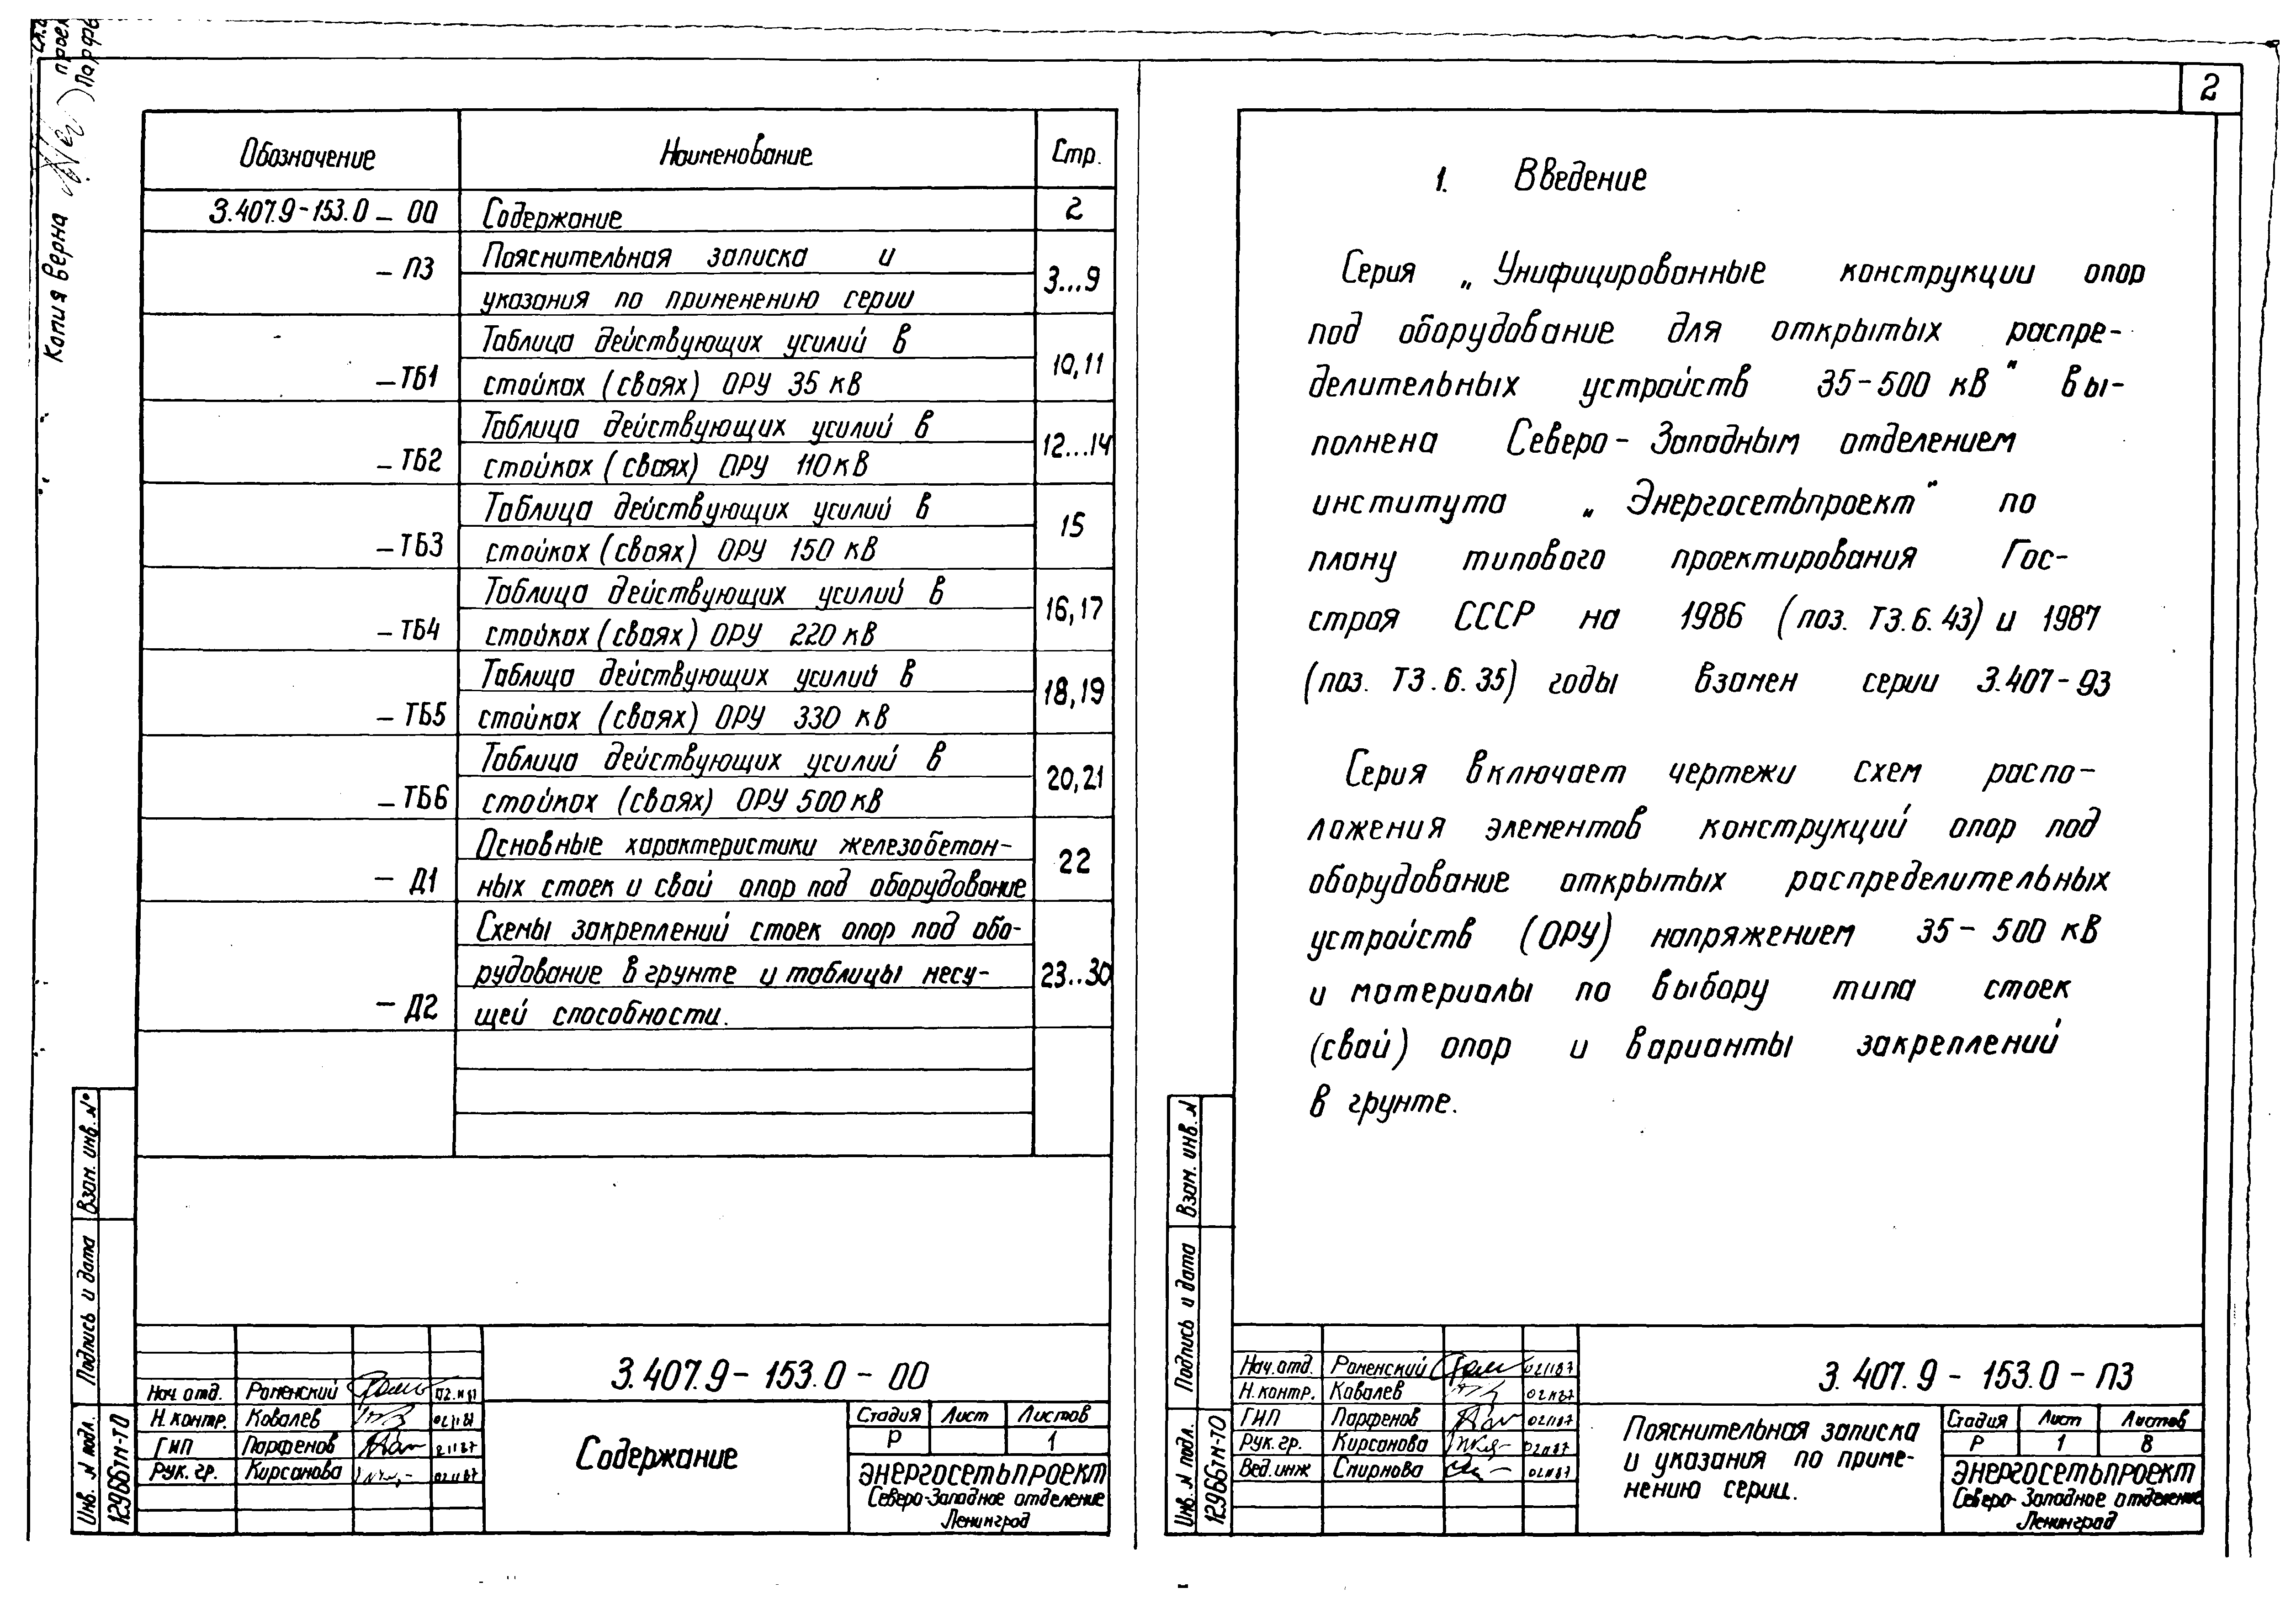 Копия верна
Обозначение Наименование Стр.
3.407.9-153.0 - 00 Содержание 2
- ПЗ Пояснительная записка и
указания по применению серии 3...9
Таблица действующих усилий в
- ТБ1 стойках (сваях) ОРУ 35 кВ 10,11
Таблица действующих усилий в
- ТБ2 стойках (сваях) ОРУ 110 кВ 12...14
Таблица действующих усилий в
- ТБ3 стойках (сваях) ОРУ 150 кВ 15
Таблица действующих усилий в
- ТБ4 стойках (сваях) ОРУ 220 кВ 16,17
Таблица действующих усилий в
- ТБ5 стойках (сваях) ОРУ 330 кВ 18,19
Таблица действующих усилий в
- ТБ6 стойках (сваях) ОРУ 500 кВ 20,21
Основные характеристики железобетон-
- Д1 ных стоек и свай опор под оборудование 22
Схемы закреплений стоек опор под обо-
рудование в грунте и таблицы несу- 23..30
- Д2 щей способности.
Взам. инв. №
Подпись и дата
Инв. N подл.
12966тм-т0
Нач. отд. Роменский 02.11.87
Н. контр. Ковалев 02.11.87
ГИП Парфенов 2.11.87
Рук. гр. Кирсанова 02.11.87
3.407.9 - 153.0 - 00
Содержание
Стадия Лист Листов
Р 1
ЭНЕРГОСЕТЬПРОЕКТ
Северо-Западное отделение
Ленинград
2
1. Введение
Серия „Унифицированные конструкции опор
под оборудование для открытых распре-
делительных устройств 35-500 кВ" вы-
полнена Северо-Западным отделением
института „Энергосетьпроект" по
плану типового проектирования Гос-
строя СССР на 1986 (поз. Т3.6.43) и 1987
(поз. Т3.6.35) годы взамен серии 3.407-93
Серия включает чертежи схем распо-
ложения элементов конструкций опор под
оборудование открытых распределительных
устройств (ОРУ) напряжением 35-500 кВ
и материалы по выбору типа стоек
(свай) опор и варианты закреплений
в грунте.
Взам. инв. N
Подпись и дата
Инв. N подл.
12966тм-т0
Нач. отд. Роменский 02.11.87
Н. контр. Ковалев 02.11.87
ГИП Парфенов 02.11.87
Рук. гр. Кирсанова 02.11.87
Вед. инж Смирнова 02.11.87
3.407.9 - 153.0 - ПЗ
Пояснительная записка
и указания по приме-
нению серии.
Стадия Лист Листов
Р 1 8
ЭНЕРГОСЕТЬПРОЕКТ
Северо-Западное отделение
Ленинград